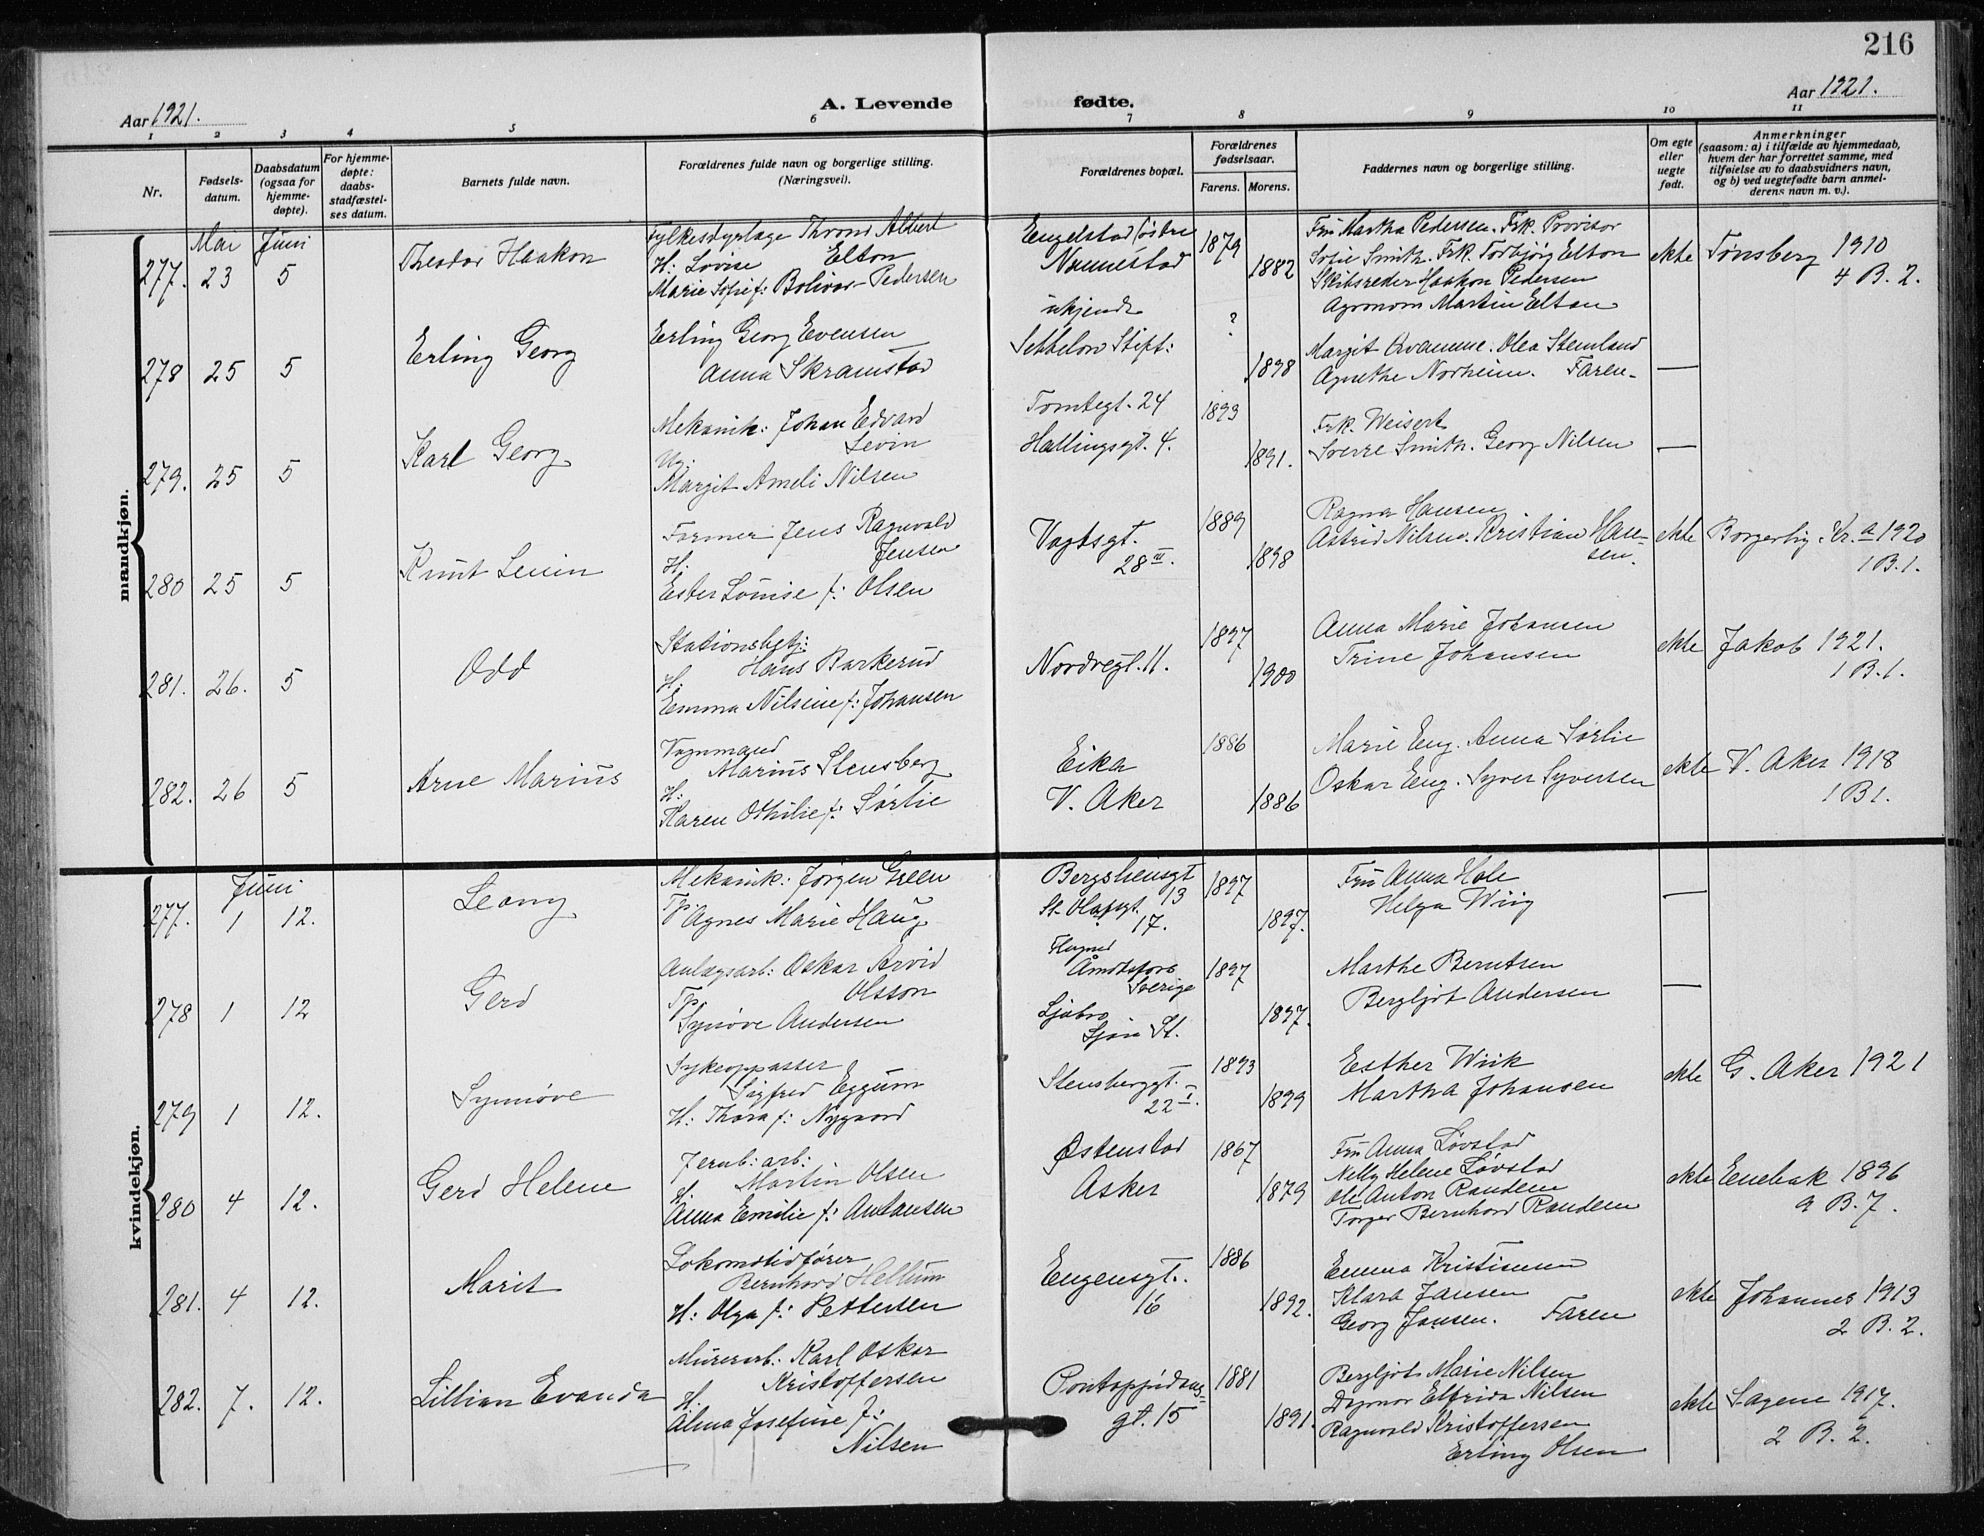 216
Aar 1921. A. Levende fødte. Aar 1921.
1 2 3 4 5 6 7 8 9 10 11
Nr.
Fødsels-
datum.
Daabsdatum
(ogsaa for
hjemme-
døpte).
For hjemme-
døpte:
daabs-
stadfæstel-
ses datum.
Barnets fulde navn.
Forældrenes fulde navn og borgerlige stilling.
(Næringsvei).
Forældrenes bopæl.
Forældrenes
fødselsaar.
Farens. Morens.
Faddernes navn og borgerlige stilling.
Om egte
eller
uegte
født.
Anmerkninger
(saasom: a) i tilfælde av hjemmedaab,
hvem der har forrettet samme, med
tilføielse av to daabsvidners navn,
og b) ved uegtefødte barn anmel-
derens navn m. v.).
mandkjøn.
Mai Juni
277. 23 5
Theodor Haakon
Fylkesdyrlæge Thrond Albert
Elton
H: Lovise
Marie Sofie f: Bolivar-Pedersen
Engelstad østre
Nannestad
1879
1882
Fru Martha Pedersen. Frk. Provisor
Sofie Smith. Frk. Torbjørg Elton
Skibsreder Haakon Pedersen
Agronom Martin Elton
ekte
Tønsberg 1910
4 B. 2.
278 25 5
Erling Georg
Erling Georg Evensen
Anna Skramstad
ukjendt
Sebbelows Stift:
?
1898
Margit Kvamme. Olea Stemland
Agnethe Norheim. Faren-
—
279. 25 5
Karl Georg
Mekanik: Johan Edvard
Levin
Ug:
Margit Ameli Nilsen
Tomtegt. 24
Hallingsgt. 4.
1893
1891.
Frk. Weisert
Sverre Smith. Georg Nilsen
—
280 25 5
Knut Levin
Former Jens Ragnvald
Jensen
H:
Ester Louise f: Olsen
Vogtsgt.
28 III.
1889
1898
Ragna Hansen
Astrid Nilsen. Kristian Han-
sen.
ekte
Borgerlig. Kr.a 1920
1 B. 1.
281. 26. 5
Odd
Stationsbetj:
Hans Barkerud
H.
Emma Nilsine f: Johansen
Nordregt. 11.
1897
1900
Anna Marie Johansen
Trine Johansen
ekte
Jakob 1921.
1 B. 1.
282. 26 5
Arne Marius
Vognmand
Marius Stensberg
H:
Karen Othilie f: Sørlie
Eika
V. Aker
1886
1886
Marie Eng. Anna Sørlie
Oskar Eng. Syver Syversen
ekte
V. Aker 1918
1 B 1.
kvindekjøn.
Juni
277. 1 12.
Leony
Mekanik: Jørgen Green
Tp: Agnes Marie Haug
Bergsliensgt
13
St. Olafsgt.
17.
1897
1897.
Fru Anna Hole
Helga Wiig
—
278 1 12
Gerd
Anlægsarb: Oskar Arvid
Olsson
Tp:
Synøve Andersen
Åmotsfors
Sverige
Ljabro
Ljan St.
1897
1897.
Marthe Berntsen
Bergljot Andersen
—
279 1 12.
Synnøve
Sykeoppasser
Sigfred Eggum
H: Thora f: Nygaard
Stensberggt.
22 I.
1893
1899
Esther Wiik
Martha Johansen
ekte
G. Aker 1921
280 4 12.
Gerd Helene
Jernb: arb:
Martin Olsen
H.
Anna Emilie f: Antonsen
Østenstad
Asker
1867
1879
Fru Anna Løvstad
Nelly Helene Løvstad
Ole Anton Randem
Torger Bernhard Randem
ekte
Enebak 1896
9 B. 7.
281. 4 12.
Marit
Lokomotivfører
Bernhard Hellum
H: Olga f: Pettersen
Eugensgt.
16
1886
1892.
Emma Kristiansen
Klara Jansen
Georg Jansen. Faren
ekte
Johannes 1913
2 B. 2.
282. 7. 12.
Lillian Evanda
Murerarb: Karl Oskar
Kristoffersen
H.
Alma Josefine f:
Nilsen
Pontoppidans-
gt. 15
1881
1891.
Bergljot Marie Nilsen
Dagmar Elfrida Nilsen
Ragnvald Kristoffersen
Erling Olsen
ekte
Sagene 1917.
2 B. 2.